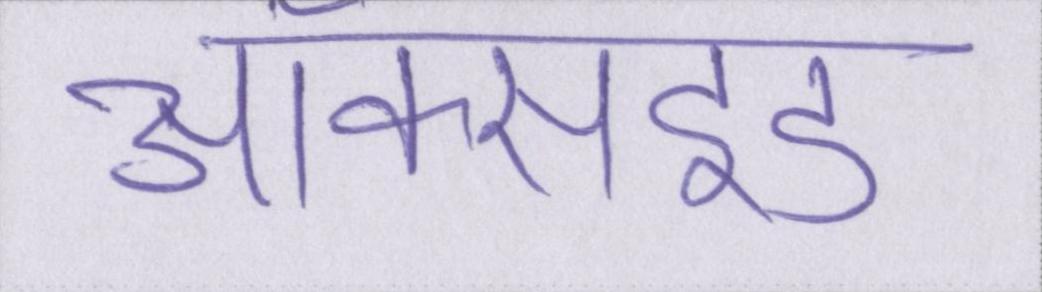 ऑक्सइड